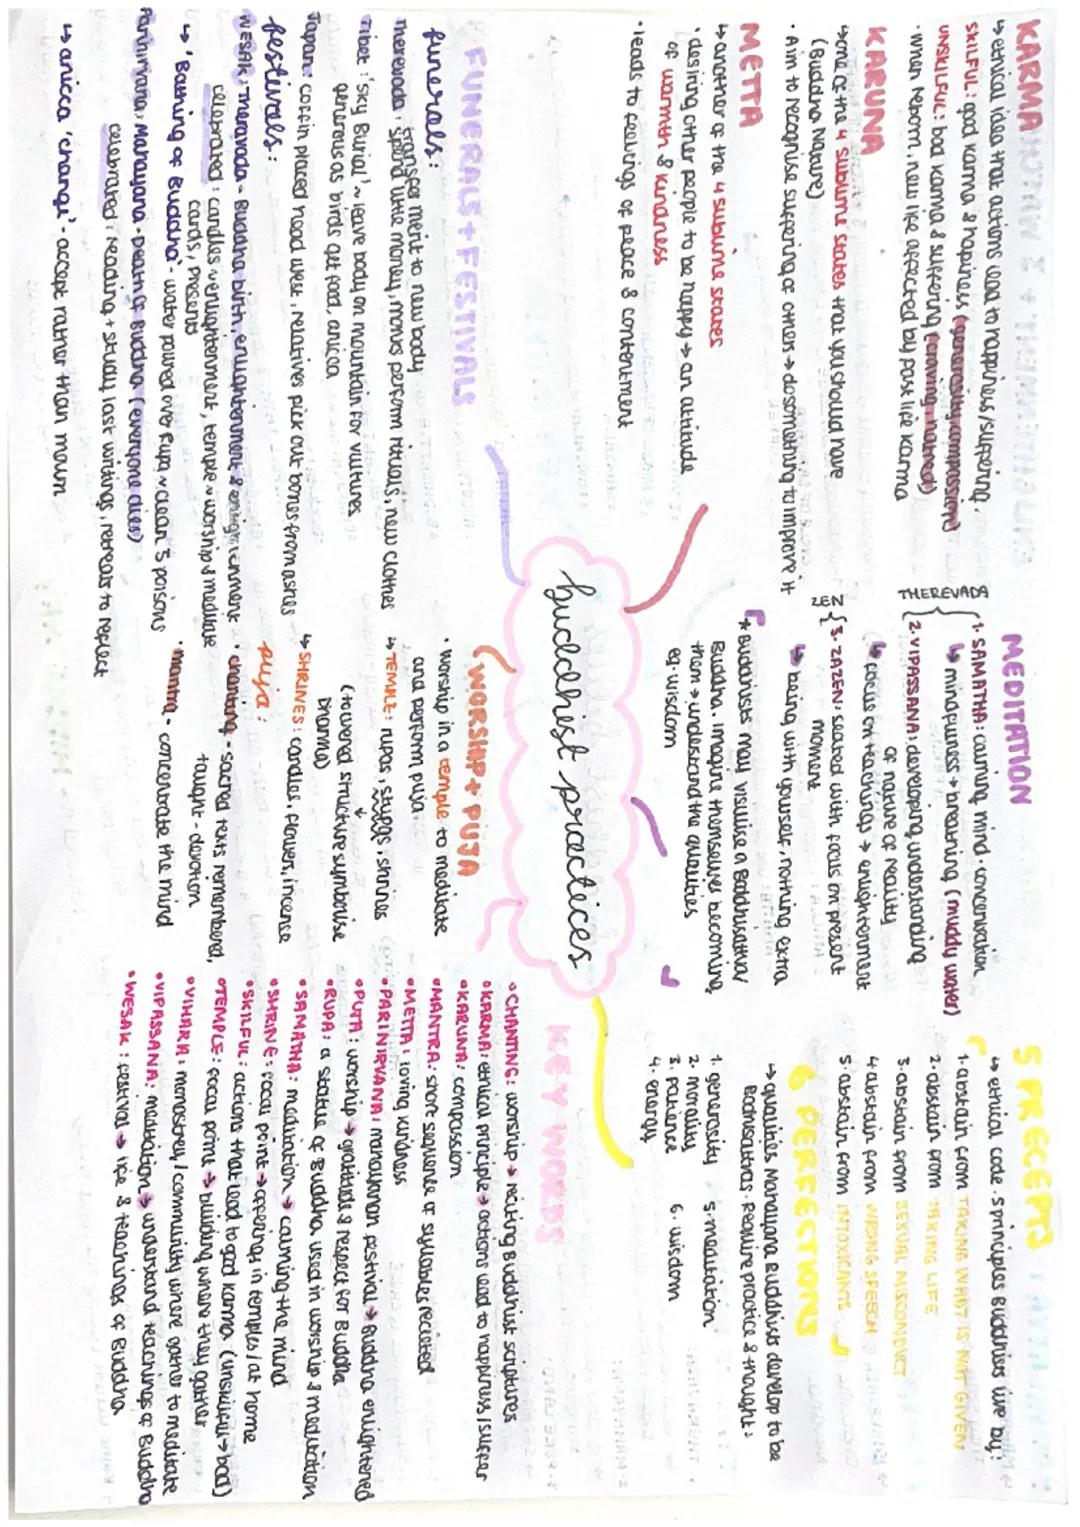 buddhist practices
KARMA
↳ ethical idea that actions lead to happiness/suffering.
SKILFUL: good karma & happiness (generosity, compassion)
UNSKILFUL: bad karma & suffering (craving, hatred)
· When reborn, new life affected by past life karma
KARUNA
↳ one of the 4 sublime states that you should have
(Buddha Nature)
· Aim to recognise suffering of others → do something to improve it
METTA
↳ another of the 4 sublime states
· desiring other people to be happy → an attitude
of warmth & kindness
· leads to feelings of peace & contentment
MEDITATION
THEREVADA
1. SAMATHA: calming mind · concentration
↳ mindfulness + breathing (muddy water)
2. VIPASSANA: developing understanding
of nature of reality
↳ focus on teachings → enlightenment
ZEN
3. ZAZEN: seated with focus on present
moment
↳ being with yourself, nothing extra
* Buddhists may visualise a Boddhisattva/
Buddha. Imagine themselves becoming
them → understand the qualities
eg. wisdom
5 PRECEPTS
↳ ethical code · 5 principles Buddhists live by:
1. abstain from TAKING WHAT IS NOT GIVEN
2. abstain from TAKING LIFE
3. abstain from SEXUAL MISCONDUCT
4. abstain from WRONG SPEECH
5. abstain from INTOXICANTS
6 PERFECTIONS
→ qualities Mahayana Buddhists develop to be
Bodhisattvas. Require practice & thought:
1. generosity 5. meditation
2. morality 6. wisdom
3. patience
4. energy
FUNERALS + FESTIVALS
funerals:
transfer merit to new body
Therevada: spend little money, monks perform rituals, new clothes
Tibet: 'Sky Burial' ~ leave body on mountain for vultures
generous as birds get food, anicca
Japan: coffin placed head west, relatives pick out bones from ashes
festivals:
WESAK: Theravada - Buddha birth, enlightenment &
celebrated: candles ~ enlightenment, temple ~ worship & mediate
cards, presents
↳ 'Bathing of Buddha' - water poured over Rupa ~ clean 3 poisons
Parinirvana: Mahayana - Death of Buddha (everyone dies)
celebrated: reading + study last writings, retreats to reflect
↳ anicca 'change' - accept rather than mourn
WORSHIP + PUJA
· Worship in a temple to mediate
and perform puja.
↳ TEMPLE: rupas, stupas, shrines
(towered structure symbolise
Dharma)
↳ SHRINES: candles, flowers, incense
puja:
· chanting - sacred texts remembered,
taught - devotion
· mantra - concentrate the mind
KEY WORDS
• CHANTING: worship → reciting Buddhist scriptures
• KARMA: ethical principle → actions lead to happiness/suffer
• KARUNA: compassion
• MANTRA: short sequence of syllables recited
• METTA: loving kindness
• PARINIRVANA: mahayanan festival → Buddha enlightened
• PUJA: worship → gratitude & respect for Buddha
• RUPA: a statue of Buddha used in worship & meditation
• SAMATHA: meditation → calming the mind
• SHRINE: focal point → offerings in temples/at home
• SKILFUL: actions that lead to good karma. (unskilful → bad)
• TEMPLE: focal point → building where they gather
• VIHARA: monastrey/community where gather to meditate
• VIPASSANA: meditation → understand teachings of Buddha
• WESAK: festival → life & teachings of Buddha.